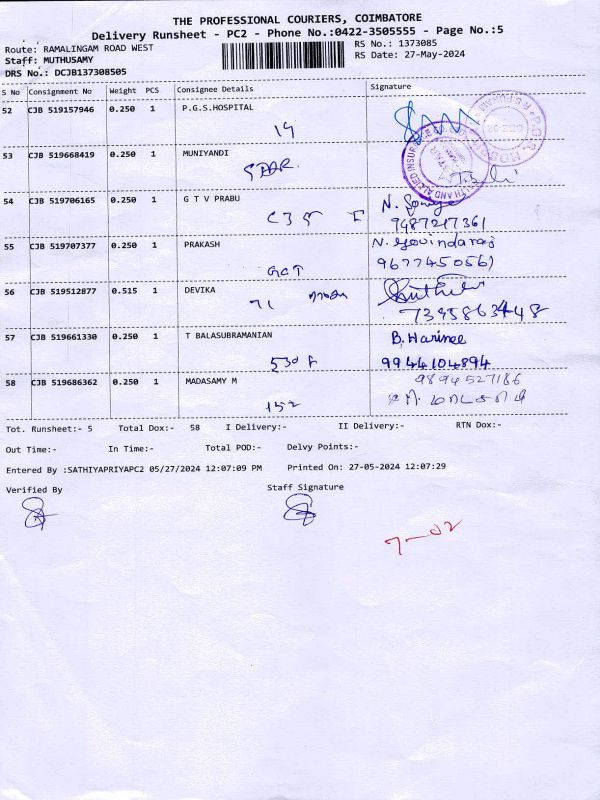 THE PROFESSIONAL COURIERS, COIMBATORE
Delivery Runsheet - PC2 - Phone No.:0422-3505555 - Page No.:5
Route: RAMALINGAM ROAD WEST
RS No.: 1373085
Staff: MUTHUSAMY
RS Date: 27-May-2024
DRS No.: DCJB137308505
S No Consignment No Weight PCS Consignee Details Signature
52 CJB 519157946 0.250 1 P.G.S.HOSPITAL
19
53 CJB 519668419 0.250 1 MUNIYANDI
54 CJB 519706165 0.250 1 G T V PRABU
9487217361
55 CJB 519707377 0.250 1 PRAKASH N. Govindaraj
GCT 9677450561
56 CJB 519512877 0.515 1 DEVIKA
71 7395863448
57 CJB 519661330 0.250 1 T BALASUBRAMANIAN B. Harinee
530 9944104894
58 CJB 519686362 0.250 1 MADASAMY M 9894527186
152
Tot. Runsheet:- 5 Total Dox:- 58 I Delivery:- II Delivery:- RTN Dox:-
Out Time:- In Time:- Total POD:- Delvy Points:-
Entered By :SATHIYAPRIYAPC2 05/27/2024 12:07:09 PM Printed On: 27-05-2024 12:07:29
Verified By Staff Signature
7-02